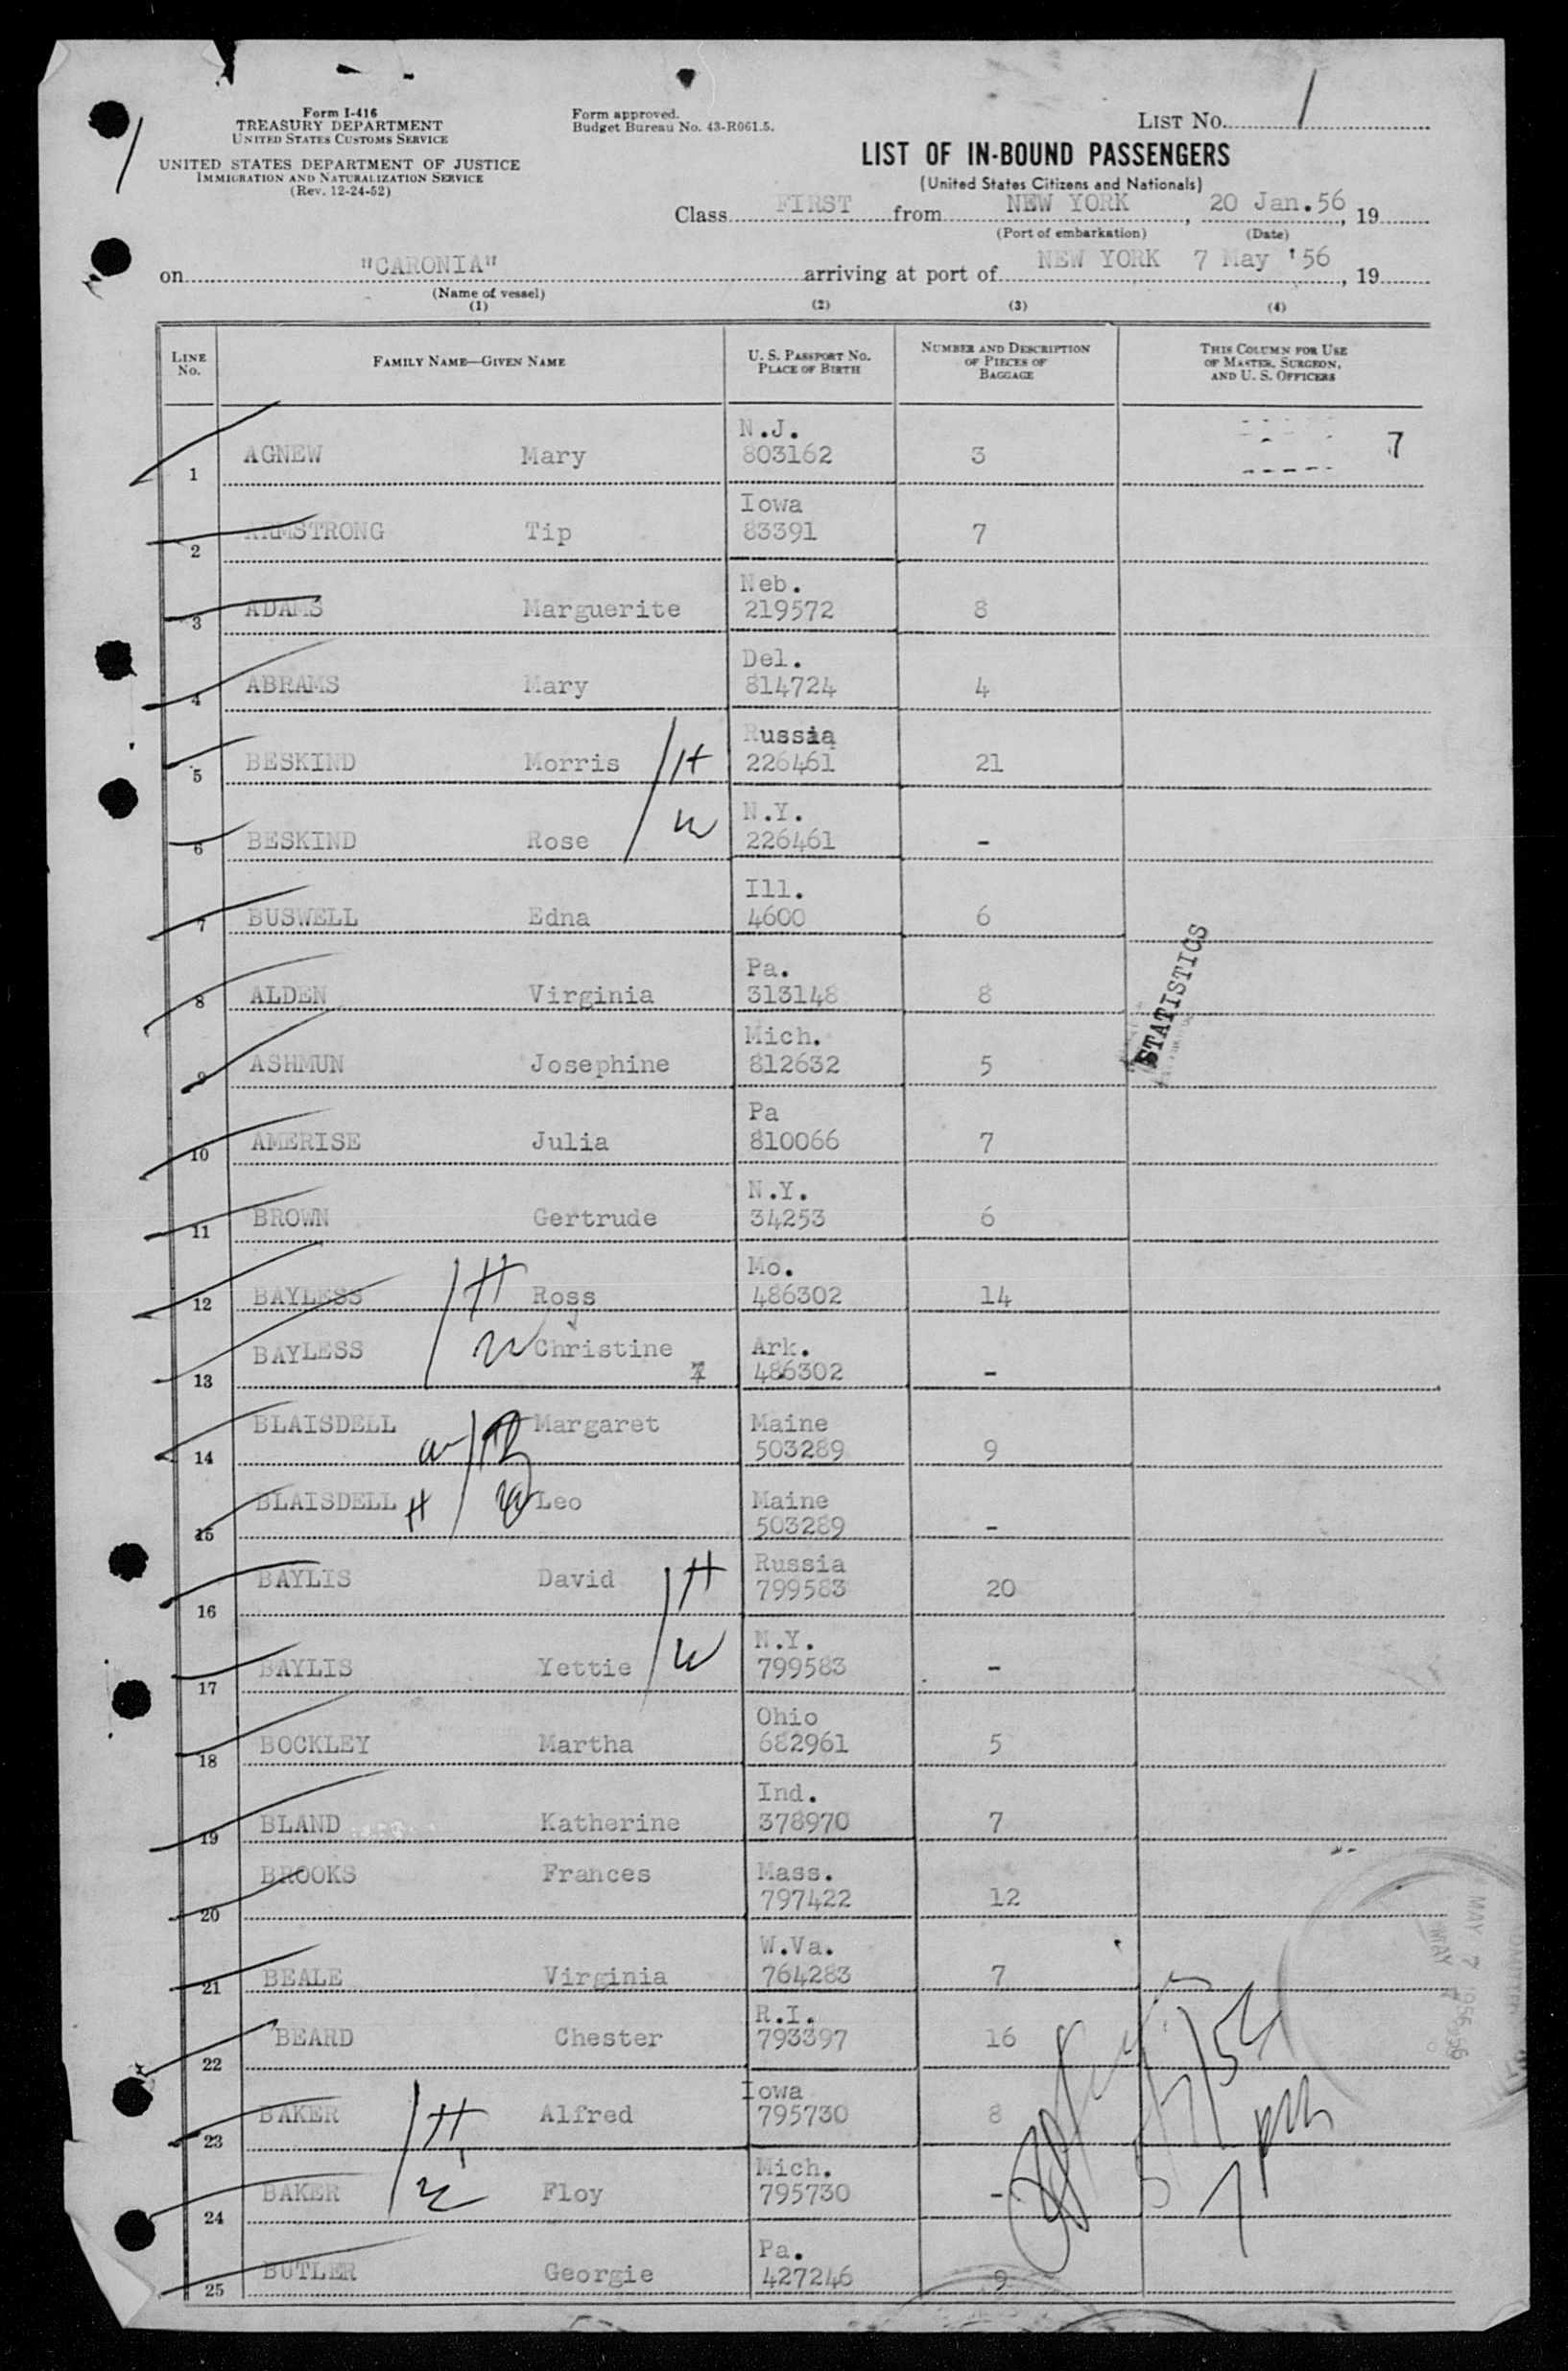 Form I-416
TREASURY DEPARTMENT
UNITED STATES CUSTOMS SERVICE
UNITED STATES DEPARTMENT OF JUSTICE
IMMIGRATION AND NATURALIZATION SERVICE
(Rev. 12-24-52)
Form approved.
Budget Bureau No. 43-R061.5.
LIST No. 1
LIST OF IN-BOUND PASSENGERS
(United States Citizens and Nationals)
Class FIRST from NEW YORK, 20 Jan.56, 19
(Port of embarkation) (Date)
on "CARONIA" arriving at port of NEW YORK 7 May '56, 19
(Name of vessel)
(1) (2) (3) (4)
LINE No. FAMILY NAME—GIVEN NAME U. S. PASSPORT NO. PLACE OF BIRTH NUMBER AND DESCRIPTION OF PIECES OF BAGGAGE THIS COLUMN FOR USE OF MASTER, SURGEON, AND U. S. OFFICERS
N.J.
1 AGNEW Mary 803162 3 7
Iowa
2 ARMSTRONG Tip 83391 7
Neb.
3 ADAMS Marguerite 219572 8
Del.
4 ABRAMS Mary 814724 4
Russia
5 BESKIND Morris H 226461 21
N.Y.
6 BESKIND Rose W 226461 -
Ill.
7 BUSWELL Edna 4600 6
Pa.
8 ALDEN Virginia 313148 8
STATISTICS
Mich.
9 ASHMUN Josephine 812632 5
Pa
10 AMERISE Julia 810066 7
N.Y.
11 BROWN Gertrude 34253 6
Mo.
12 BAYLESS H Ross 486302 14
Ark.
13 BAYLESS W Christine 486302 -
Maine
14 BLAISDELL W Margaret 503289 9
Maine
15 BLAISDELL H Leo 503289 -
Russia
16 BAYLIS David H 799583 20
N.Y.
17 BAYLIS Yettie W 799583 -
Ohio
18 BOCKLEY Martha 682961 5
Ind.
19 BLAND Katherine 378970 7
Mass.
20 BROOKS Frances 797422 12
W.Va.
21 BEALE Virginia 764283 7
MAY 7 1956
R.I.
22 BEARD Chester 793397 16
Iowa
23 BAKER H Alfred 795730 8
Mich.
24 BAKER W Floy 795730 -
Pa.
25 BUTLER Georgie 427246 9